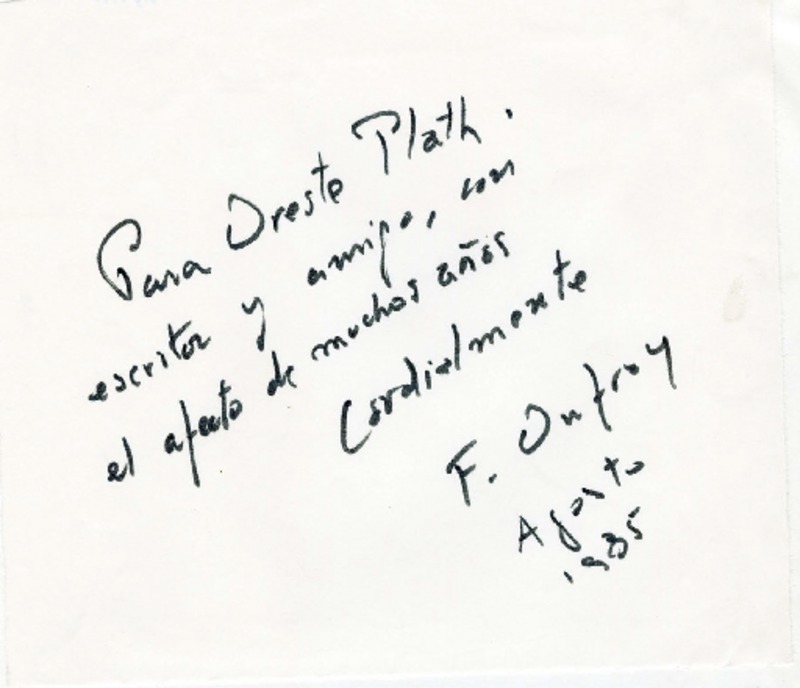 Para Oreste Plath.
escritor y amigo, con
el afecto de muchos años
Cordialmente
F. Onfray
Agosto
1985